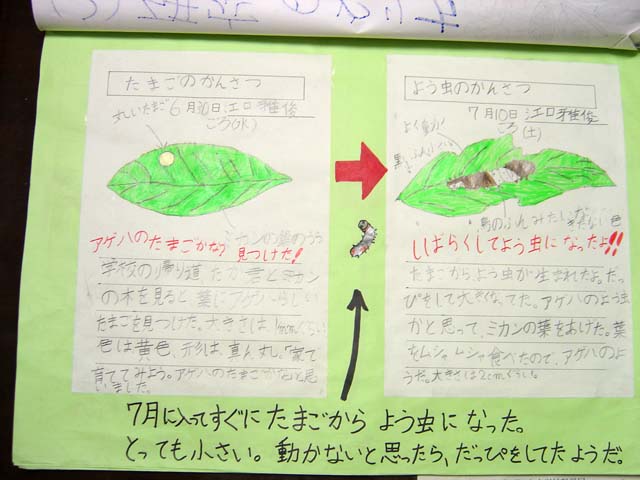 たまごのかんさつ
丸いたまご
6月30日 江口雅俊
ごろ(水)
ミカンの葉のうら
アゲハのたまごかな
見つけた!
学校の帰り道、たか君とミカン
の木を見ると、葉にアゲハらしい
たまごを見つけた。大きさは、1mmくらい
色は、黄色、形は、真ん丸。「家で
育ててみよう。アゲハのたまごかなと思
いました。
よう虫のかんさつ
7月10日 江口雅俊
ごろ(土)
よく動く
鳥のふんみたいな
きたない色
しばらくしてよう虫になったよ!!
たまごからよう虫が生まれたよ。だっ
ぴをして大きくなってた。アゲハのよう虫
かと思って、ミカンの葉をあげた。葉
をムシャムシャ食べたので、アゲハのよ
うだ。大きさは2cmくらい。
7月に入ってすぐにたまごからよう虫になった。
とっても小さい。動かないと思ったら、だっぴをしてたようだ。